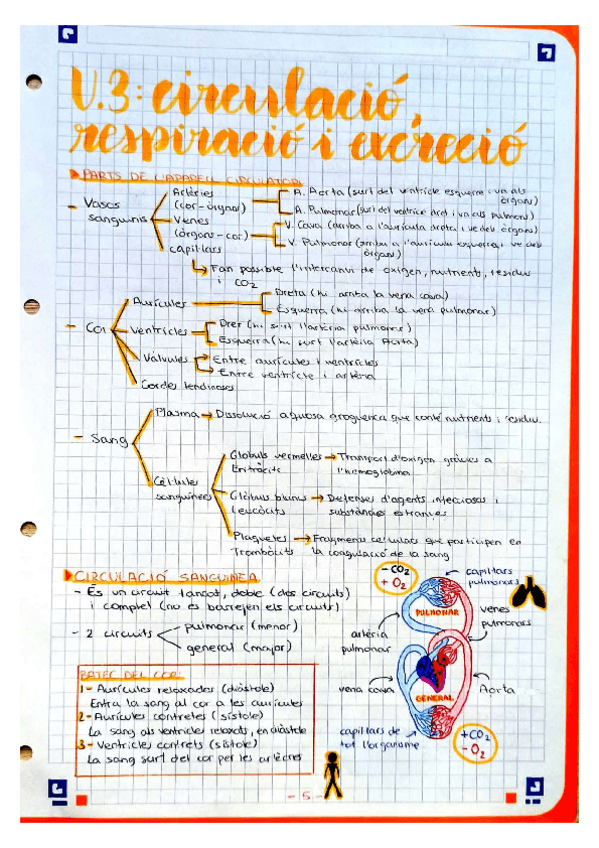 U.3: circulació,
respiració i excreció
PARTS DE L'APARELL CIRCULATORI
- Vasos sanguinis
Artèries (cor-òrgnal)
A. Aorta (surt del ventricle esquerre i va als òrgans)
A. Pulmonar (surt del ventricle dret i va als pulmons)
Venes (òrgans-cor)
V. Cava (arriba a l'aurícula dreta i ve dels òrgans)
V. Pulmonar (arriba a l'aurícula esquerra i ve dels òrgans)
capil·lars
Fan possible l'intercanvi de oxigen, nutrients, residus
i CO2
- Cor
Aurícules
Dreta (hi arriba la vena cava)
Esquerra (hi arriba la vena pulmonar)
Ventricles
Dret (hi surt l'artèria pulmonar)
Esquerra (hi surt l'artèria Aorta)
Vàlvules
Entre aurícules i ventricles
Entre ventricle i artèria
Cordes tendinoses
- Sang
Plasma → Dissolució aquosa groguenca que conté nutrients i residus.
Cèl·lules sanguínees
Glòbuls vermells → Transport d'oxigen gràcies a
Eritròcits l'hemoglobina
Glòbuls blancs → Defenses d'agents infecciosos i
Leucòcits substàncies estranyes
Plaquetes → Fragments cel·lulars que participen en
Trombòcits la coagulació de la sang
CIRCULACIÓ SANGUÍNEA
- És un circuit tancat, doble (dos circuits)
i complet (no es barrejen els circuits)
- 2 circuits
pulmonar (menor)
general (major)
BATEC DEL COR:
1- Aurícules relaxades (diàstole)
Entra la sang al cor a les aurícules
2- Aurícules contretes (sístole)
La sang als ventricles relaxats, en diàstole
3- Ventricles contrets (sístole)
La sang surt del cor per les artèries
- CO2
+ O2
capil·lars
pulmonars
PULMONAR
venes
pulmonars
artèria
pulmonar
vena cava
Aorta
GENERAL
capil·lars de
tot l'organisme
+CO2
- O2
- 5 -